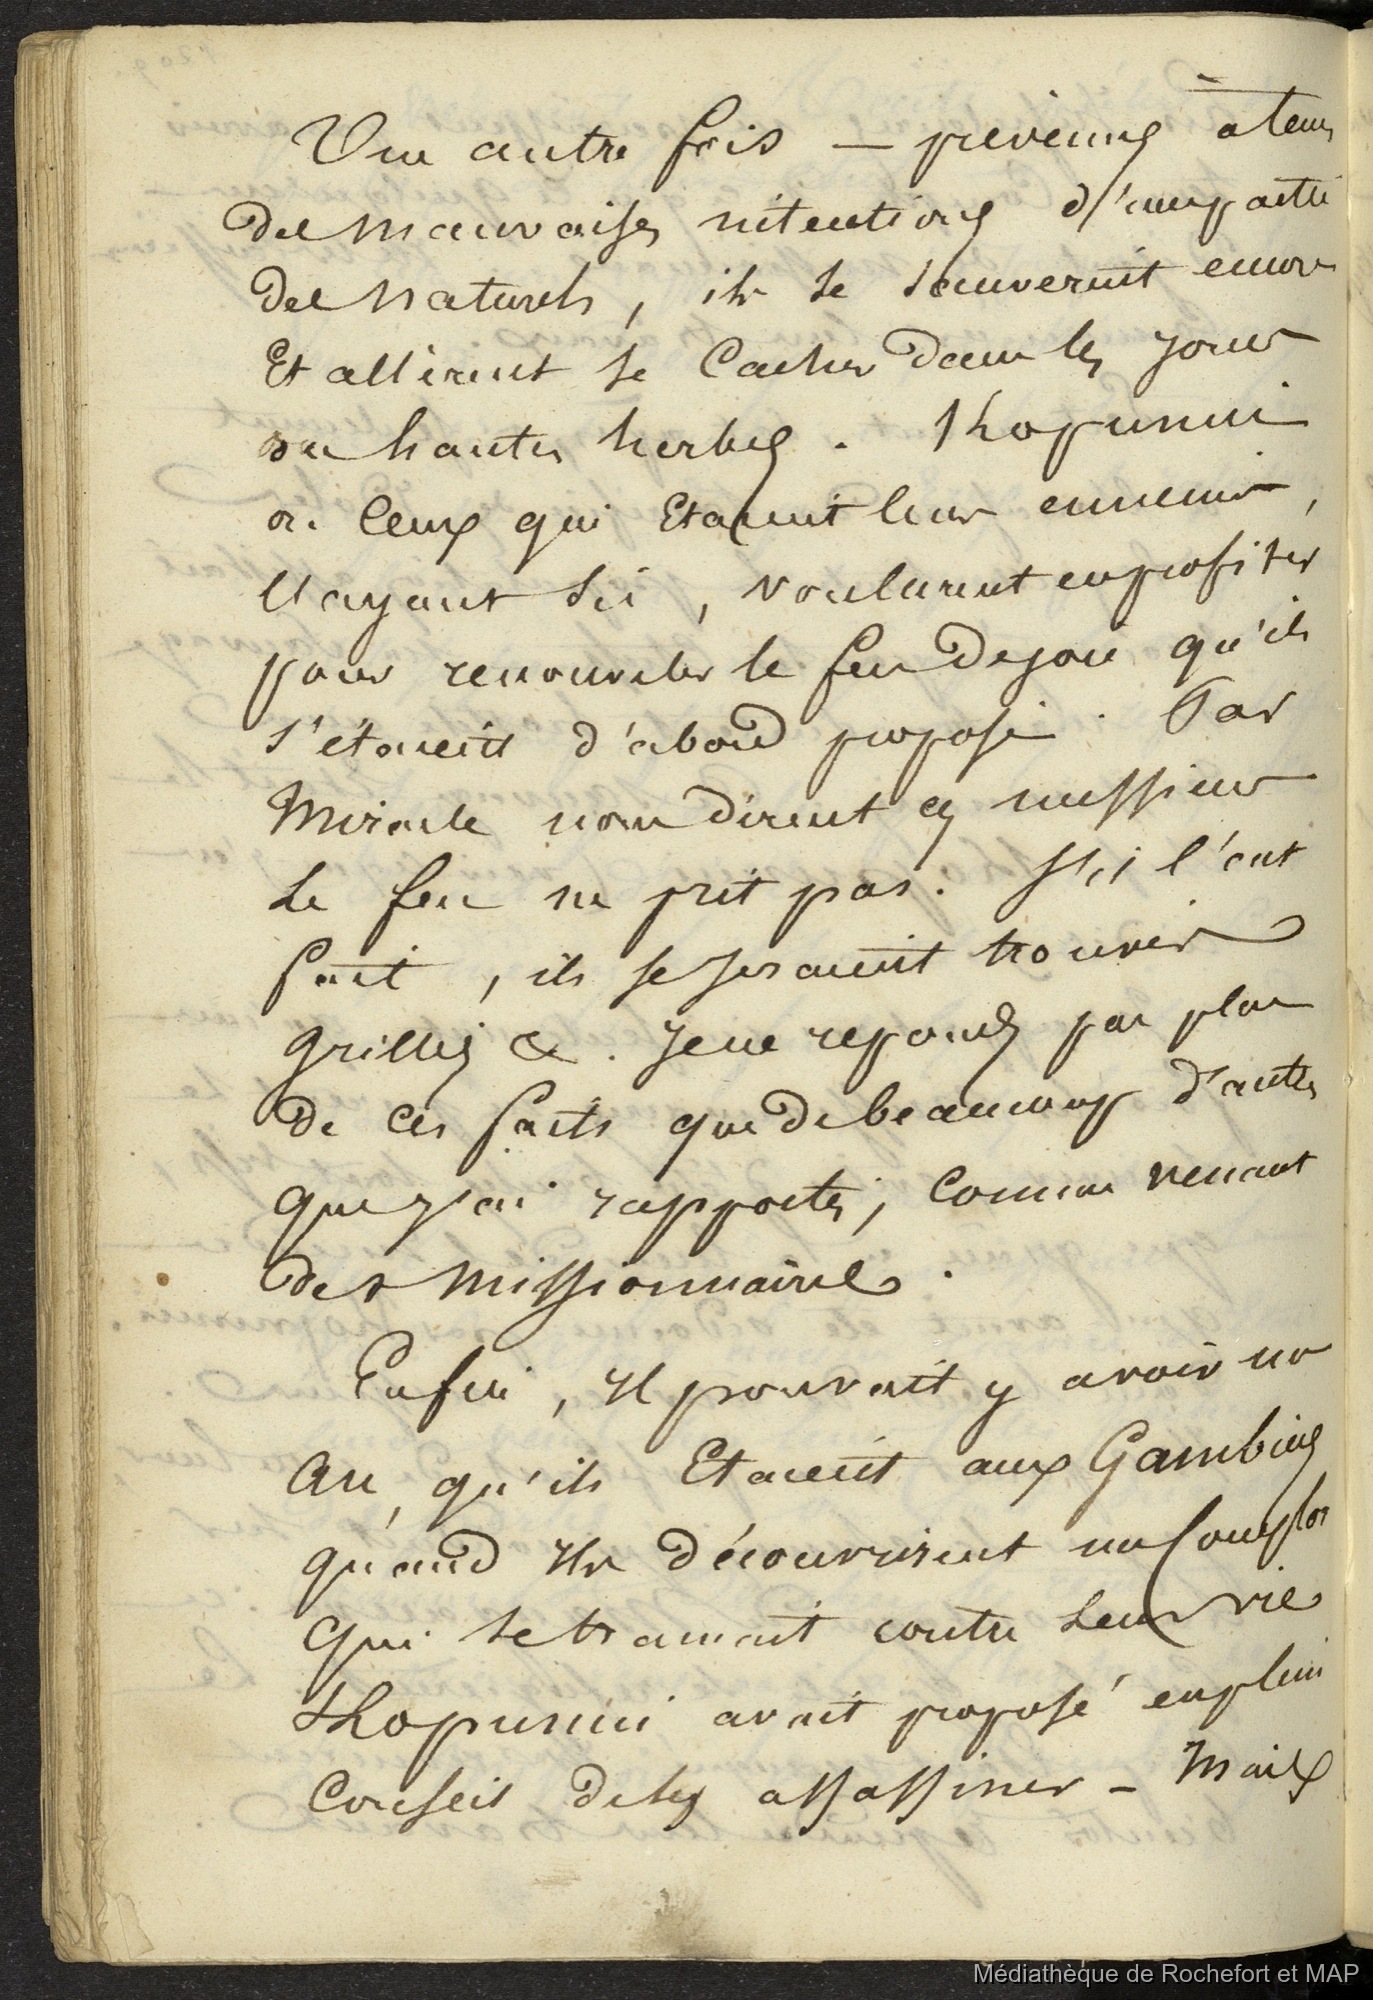 Une autre fois — prévenus a tems
des mauvaises intentions d'une partie
des naturels, ils se sauverent encore
Et allèrent se Cacher dans les joncs
ou hautes herbes. Thopunui
ou Ceux qui Etaient leur ennemis,
l'ayant sù, voulurent en profiter
pour renouveler le feu de joie qu'ils
s'étaient d'abord proposé. Par
Miracle nous dirent ces messieurs
Le feu ne prit pas. S'il l'eut
fait, ils se seraient trouvés
grillés &. Je ne reponds pas plus
de Ces faits que de beaucoup d'autres
que j'ai rapportés, Comme venant
des Missionnaires.
Enfin, il pouvait y avoir un
an, qu'ils Etaient aux Gambiers
quand ils découvrirent un Complot
qui se tramait contre leur vie
Thopunui avait proposé en plein
Conseil de les assassiner — Mais
Médiathèque de Rochefort et MAP